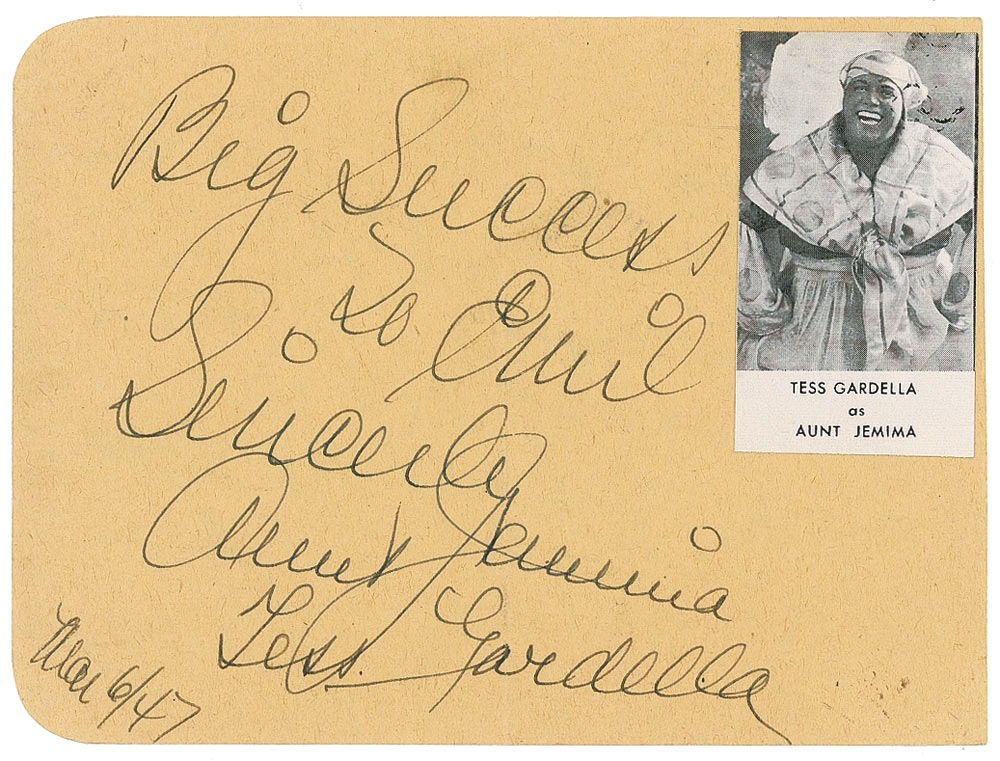 Big Success
To Emil
Sincerely
Aunt Jemima
Tess Gardella
Mar 6/47
TESS GARDELLA
as
AUNT JEMIMA